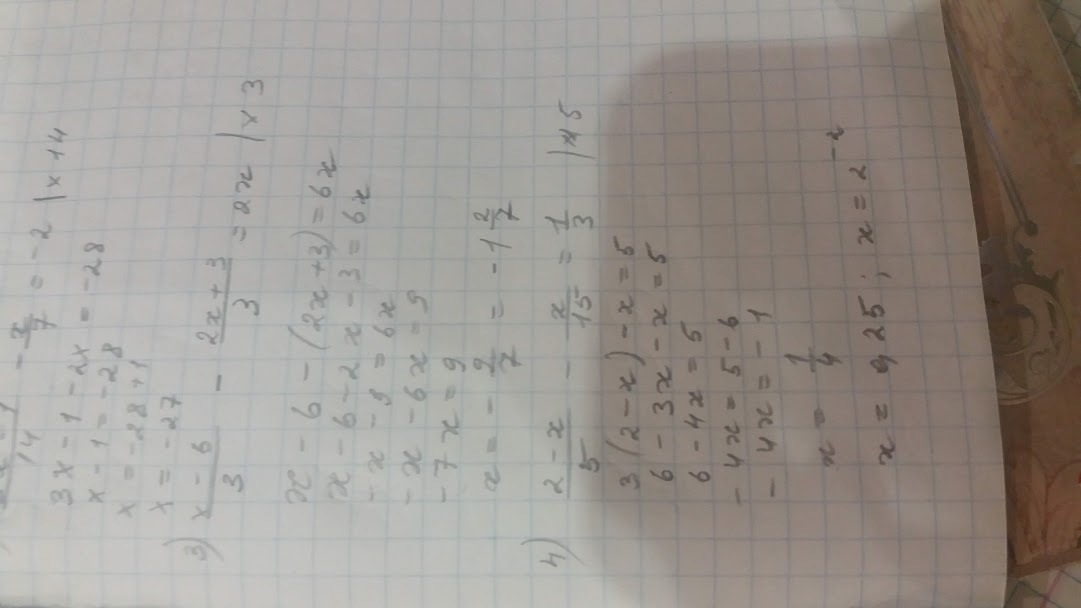 3x - 1 / 14 - x/7 = -2 | x 14
3x - 1 - 2x = -28
x - 1 = -28
x = -28 + 1
x = -27
3) x - 6 / 3 - 2x + 3 / 3 = 2x | x 3
x - 6 - (2x + 3) = 6x
x - 6 - 2x - 3 = 6x
- x - 9 = 6x
- x - 6x = 9
- 7x = 9
x = - 9/7 = - 1 2/7
4) 2 - x / 5 - x/15 = 1/3 | x 15
3 (2 - x) - x = 5
6 - 3x - x = 5
6 - 4x = 5
- 4x = 5 - 6
- 4x = - 1
x = 1/4
x = 0,25 ; x = 2⁻²